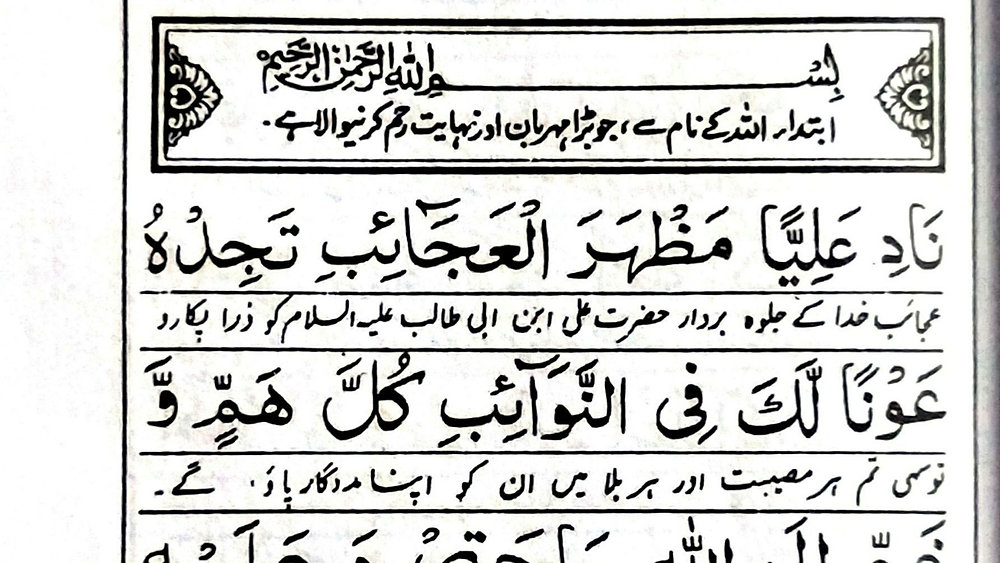 بِسْمِ اللهِ الرَّحْمٰنِ الرَّحِيْمِ
ابتدار اللہ کے نام سے، جو بڑا مہربان اور نہایت رحم کرنیوالا ہے۔
نَادِ عَلِيًّا مَظْهَرَ الْعَجَآئِبِ تَجِدْهُ
عجائب خدا کے جلوہ بردار حضرت علی ابن ابی طالب علیہ السلام کو ذرا پکارو
عَوْنًا لَّكَ فِى النَّوَآئِبِ كُلَّ هَمٍّ وَّ
توسہی تم ہر مصیبت اور ہر بلا میں ان کو اپنا مددگار پاؤ گے۔